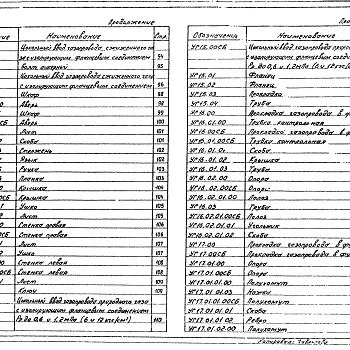 Продолжение
Наименование
Стр.
Цокольный ввод газопровода сжиженного газа
с изолирующим фланцевым соединением 94
Болт анкерный 95
Цокольный ввод газопровода сжиженного газа
с изолирующим фланцевым соединением 96
Шкаф 98
Дверь 98
Шкаф 99
Дверь 100
Лист 101
Скоба 101
Стержень 102
Язык 102
Ручка 103
Планка 103
Крышка 104
Крышка 104
Ушко 105
Лист 105
Стенка правая 106
Стенка правая 106
Лист 107
Ушко 107
Стенка левая 108
Стенка левая 108
Лист 109
Ключ 109
Цокольный ввод газопровода природного газа
с изолирующим фланцевым соединением
Ру до 0,6 и 1,2 МПа (6 и 12 кгс/см²) 110
Обозначение
Наименование
УГ 15.00СБ Цокольный ввод газопровода
с изолирующим фланцевым
Ру до 0,6 и 1,2 МПа (6 и 12 кгс/
УГ 15.01 Фланец
УГ 15.02 Фланец
УГ 15.03 Прокладка
УГ 15.04 Труба
УГ 16.00 Прокладка газопровода в
УГ 16.01.00 Трубка контрольная
УГ 16.00СБ Прокладка газопровода в
УГ 16.01.00СБ Трубка контрольная
УГ 16.01.01 Скоба
УГ 16.01.02 Крышка
УГ 16.01.03 Труба
УГ 16.02.00 Опора
УГ 16.02.00СБ Опора
УГ 16.02.01.00 Полоз
УГ 16.03 Труба
УГ 16.02.01.00СБ Полоз
УГ 16.02.01.01 Угольник
УГ 16.02.01.02 Скоба
УГ 17.00 Прокладка газопровода в
УГ 17.00СБ Прокладка газопровода в
УГ 17.01.00 Опора
УГ 17.01.00СБ Опора
УГ 17.01.01.00 Полухомут
УГ 17.01.03 Накладка
УГ 17.01.01.00СБ Полухомут
УГ 17.01.01.01 Скоба
УГ 17.01.01.02 Ребро
УГ 17.01.02.00 Полухомут